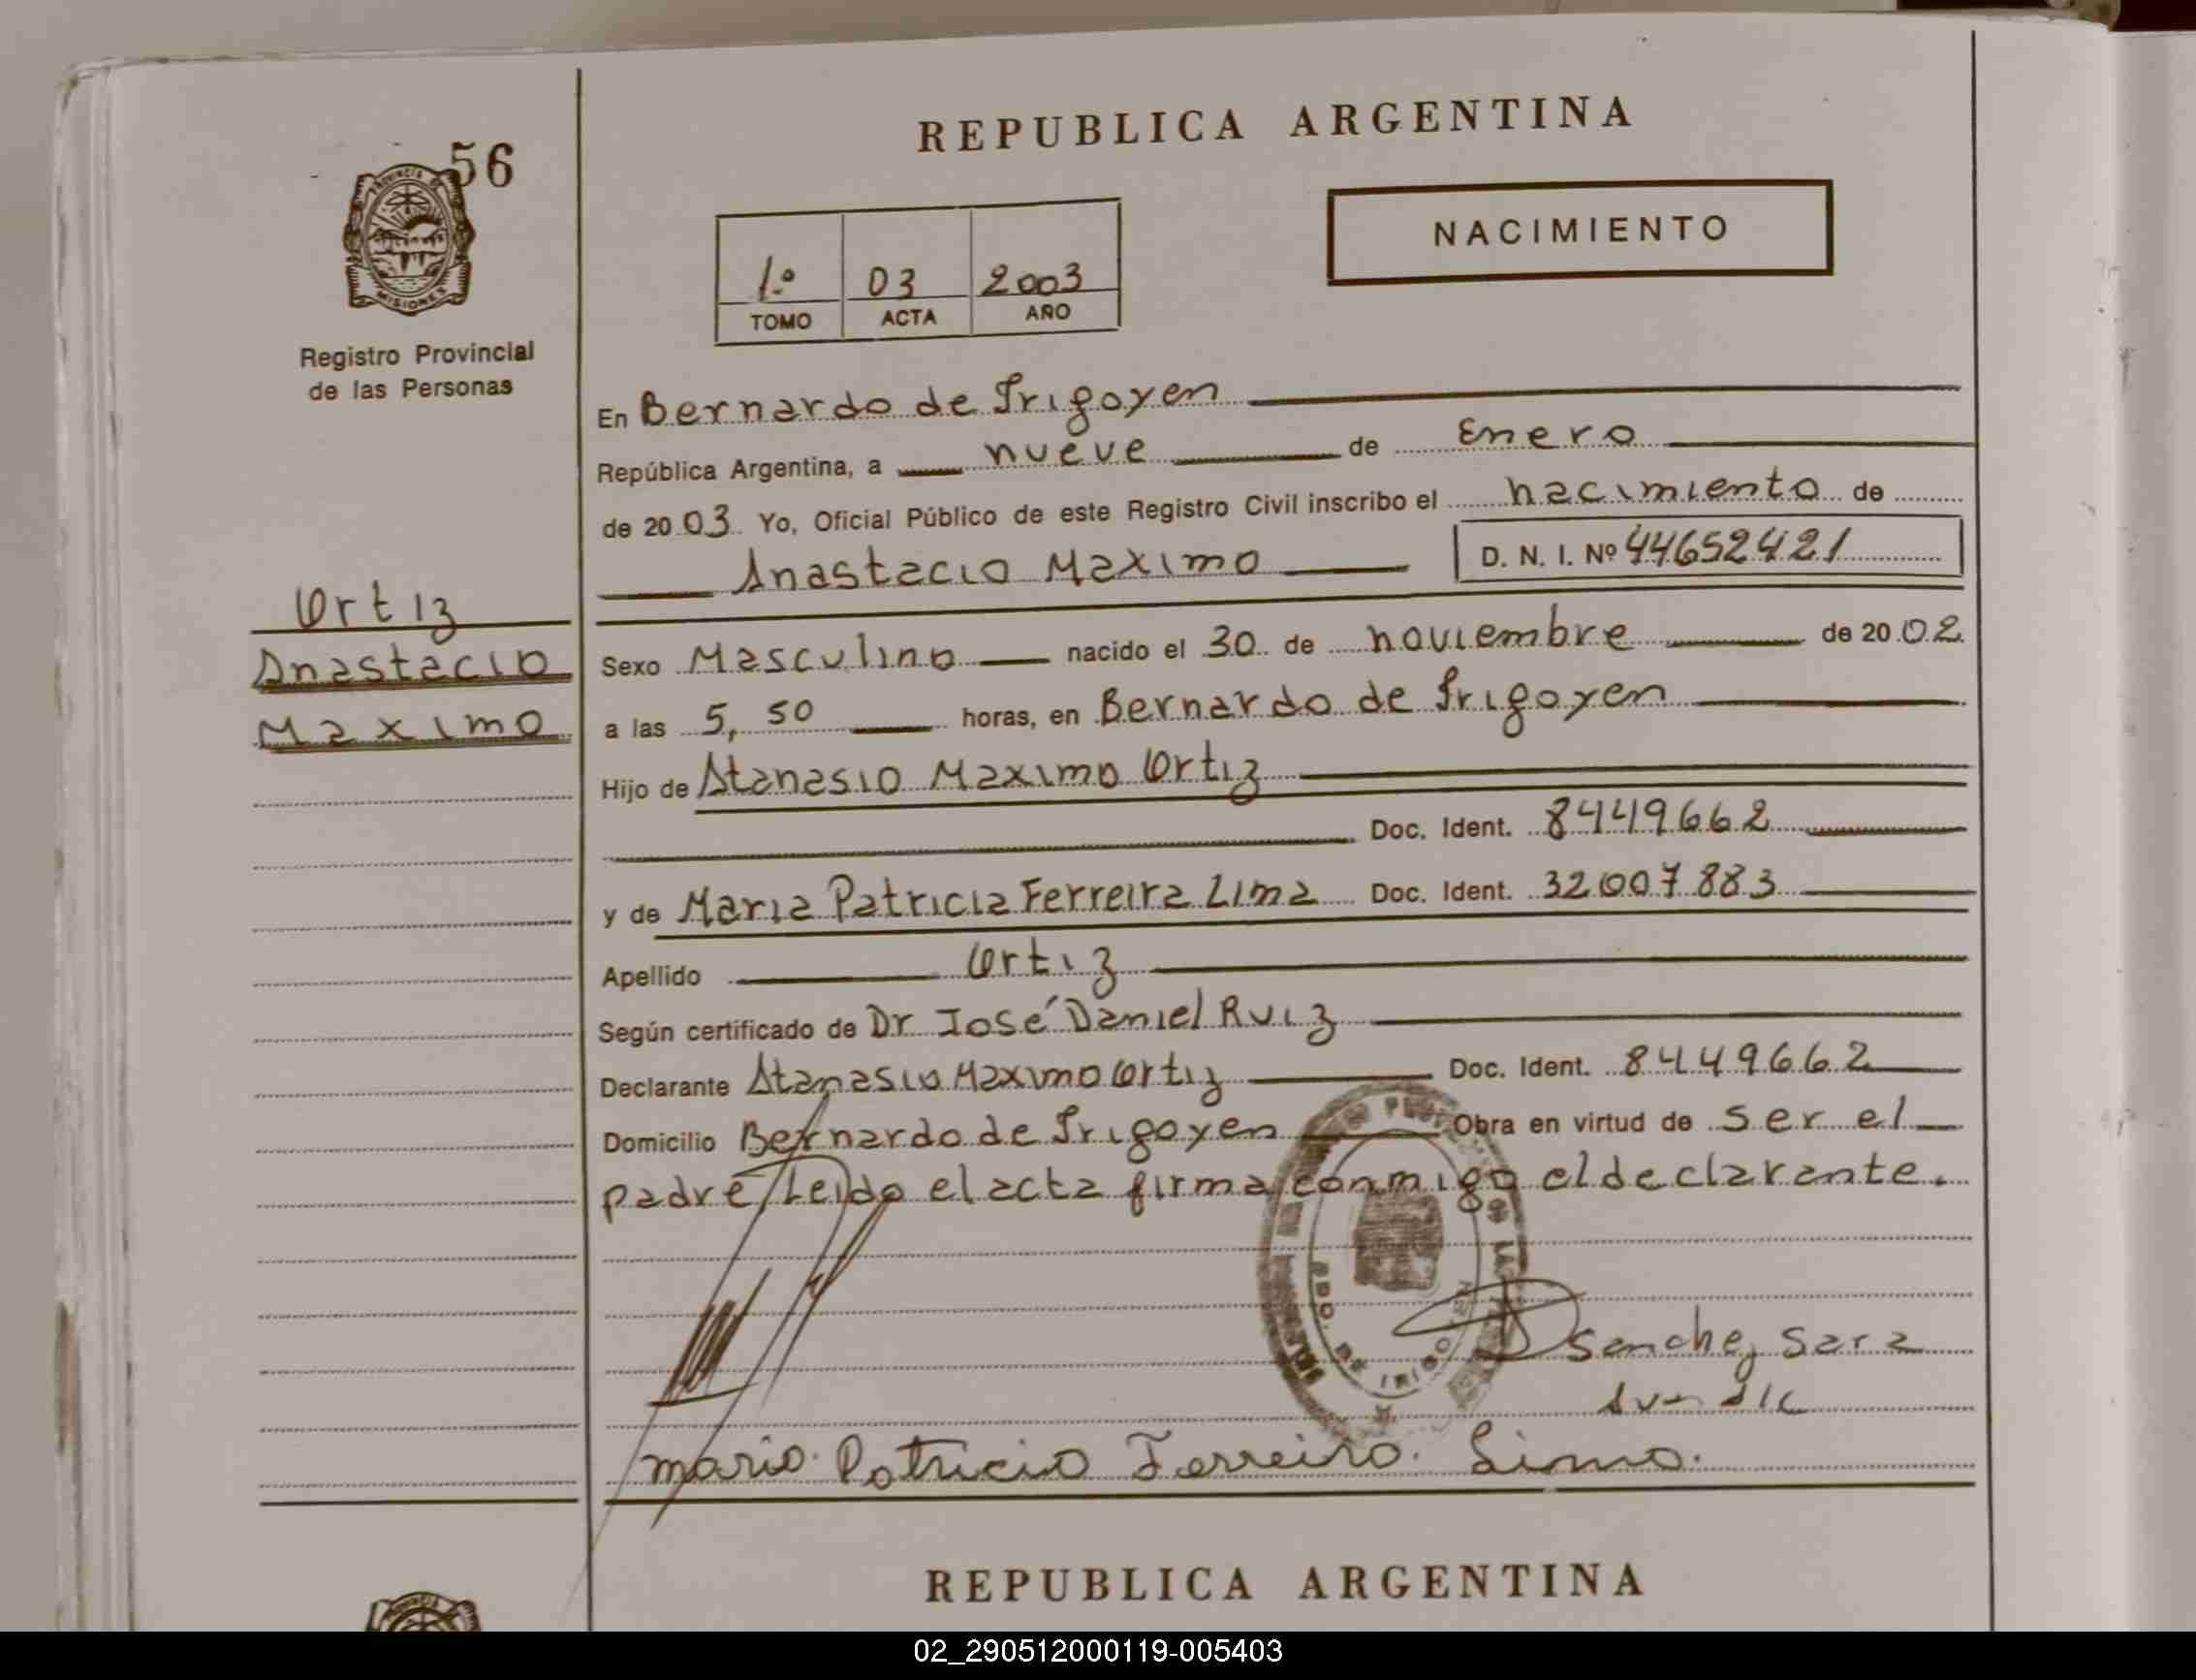 REPUBLICA ARGENTINA
56
PROVINCIA DE
MISIONES
Registro Provincial
de las Personas
NACIMIENTO
1.º 03 2003
TOMO ACTA AÑO
En Bernardo de Irigoyen
República Argentina, a nueve de Enero
de 2003 Yo, Oficial Público de este Registro Civil inscribo el nacimiento de
Anastacio Maximo D. N. I. Nº 44652421
Ortiz
Anastacio
Maximo
Sexo Masculino nacido el 30 de noviembre de 2002
a las 5,50 horas, en Bernardo de Irigoyen
Hijo de Atanasio Maximo Ortiz
Doc. Ident. 8449662
y de Maria Patricia Ferreira Lima Doc. Ident. 32007883
Apellido Ortiz
Según certificado de Dr José Daniel Ruiz
Declarante Atanasio Maximo Ortiz Doc. Ident. 8449662
Domicilio Bernardo de Irigoyen Obra en virtud de ser el
padre, Leido el acta firma conmigo el declarante.
BDO. DE IRIGO
Sanchez Sara
maria Patricia Ferreira. Lima.
REPUBLICA ARGENTINA
02_290512000119-005403